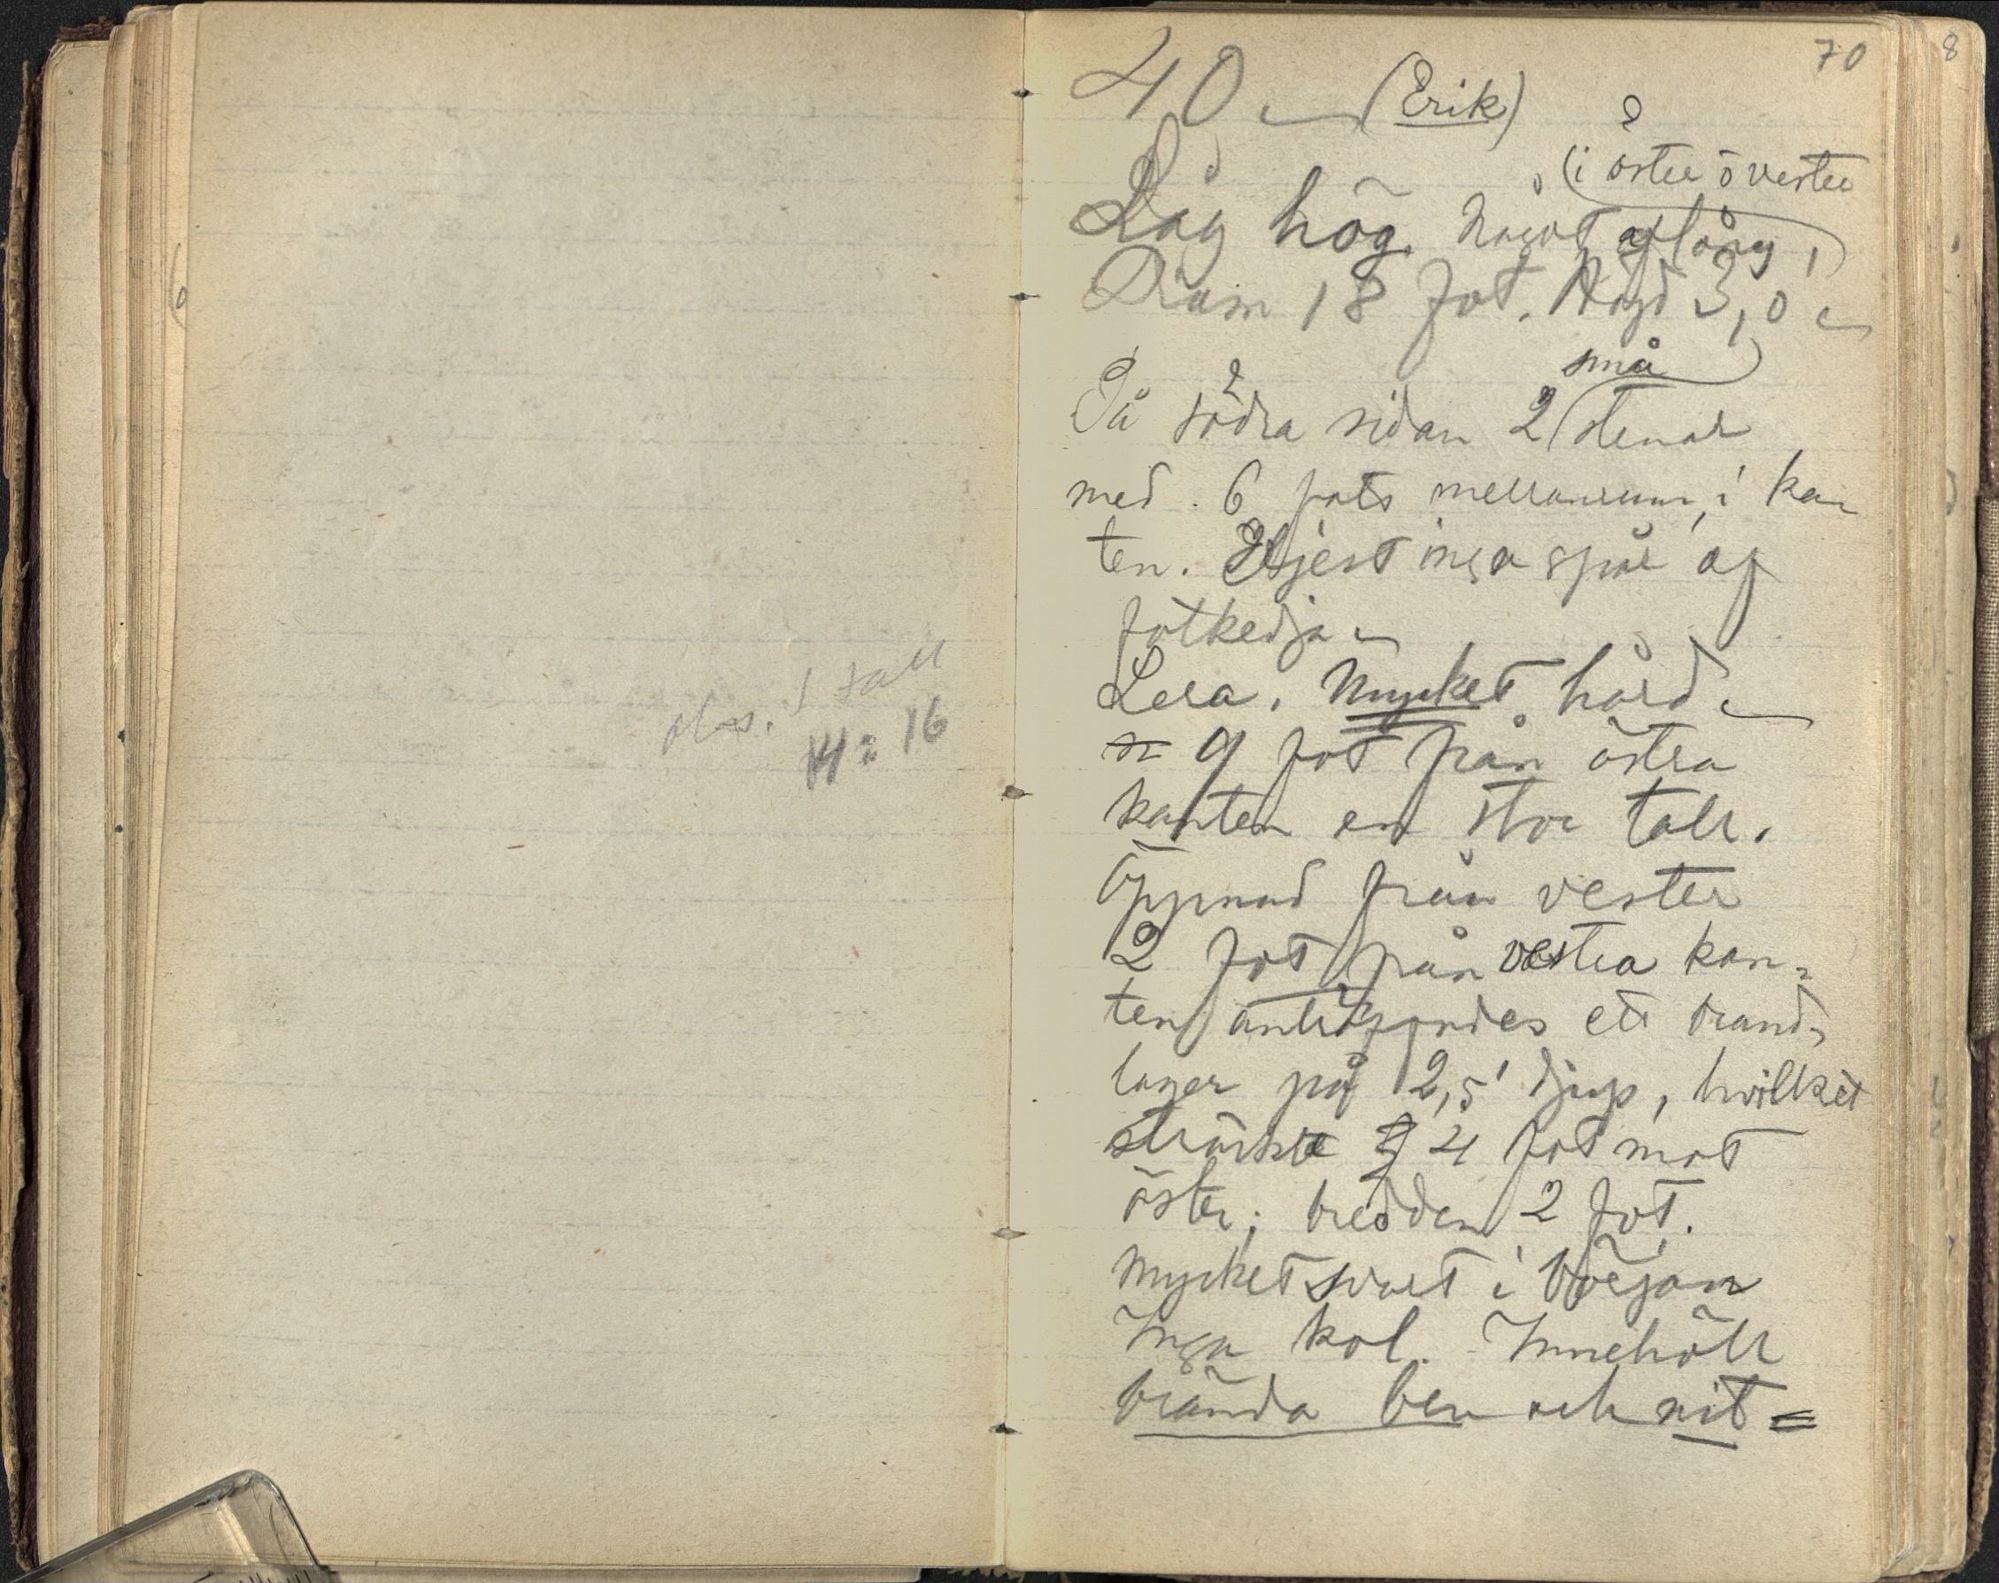 obs. 1 tall
14: 16
70
40 (Erik)
(i öster o vester
Låg hög. Något aflång,
Diam 18 fot. Höjd 3,0
små
På södra sidan 2 stenar
med 6 fots mellanrum, i kan
ten. Eljest inga spår af
fotkedja
Lera. Mycket hård
9 fot från östra
kanten en stor tall.
Öppnad från vester
2 fot från vestra kan=
ten anträffades ett brand=
lager på 2,5' djup, hvilket
sträckte 4 fot mot
öster; bredden 2 fot.
Mycket svart i början
Inga kol. Innehöll
brända ben och nit=
8